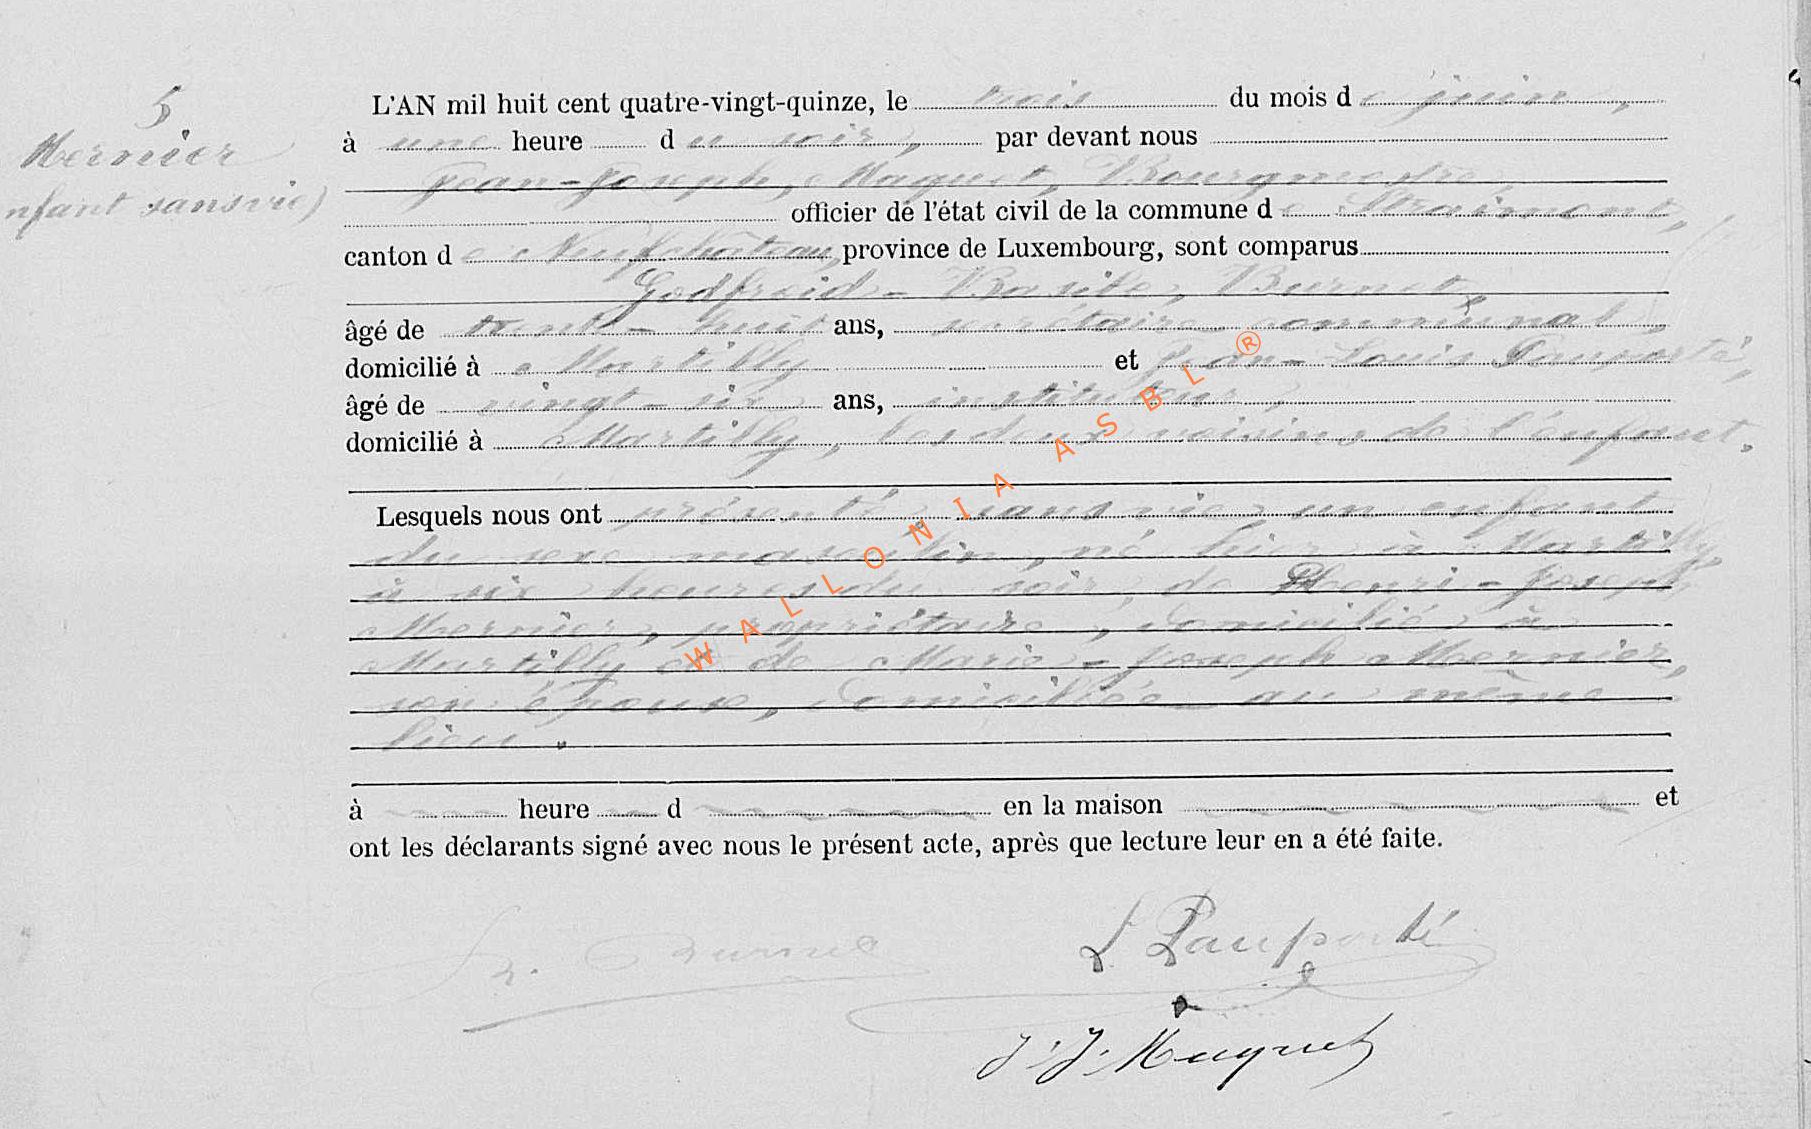 5
Mernier
nfant sans vie)
L'AN mil huit cent quatre-vingt-quinze, le trois du mois de juin,
à une heure du soir, par devant nous
Jean-Joseph, Maquet, Bourgmestre
officier de l'état civil de la commune de Straimont,
canton de Neufchâteau, province de Luxembourg, sont comparus
Godfroid-Basile, Burnet,
âgé de trente-huit ans, secrétaire communal,
domicilié à Martilly et Jean-Louis Pauporté,
âgé de vingt-six ans, instituteur,
domicilié à Martilly, les deux voisins de l'enfant.
Lesquels nous ont présenté, sans vie, un enfant
du sexe masculin, né hier à Martilly,
à six heures du soir, de Henri-Joseph
Mernier, propriétaire, domicilié à
Martilly et de Marie-Joseph Mernier,
son épouse, domiciliée au même
lieu.
à heure d en la maison et
ont les déclarants signé avec nous le présent acte, après que lecture leur en a été faite.
Burnet
L. Pauporté
J. J. Maquet
WALLONIA ASBL ®